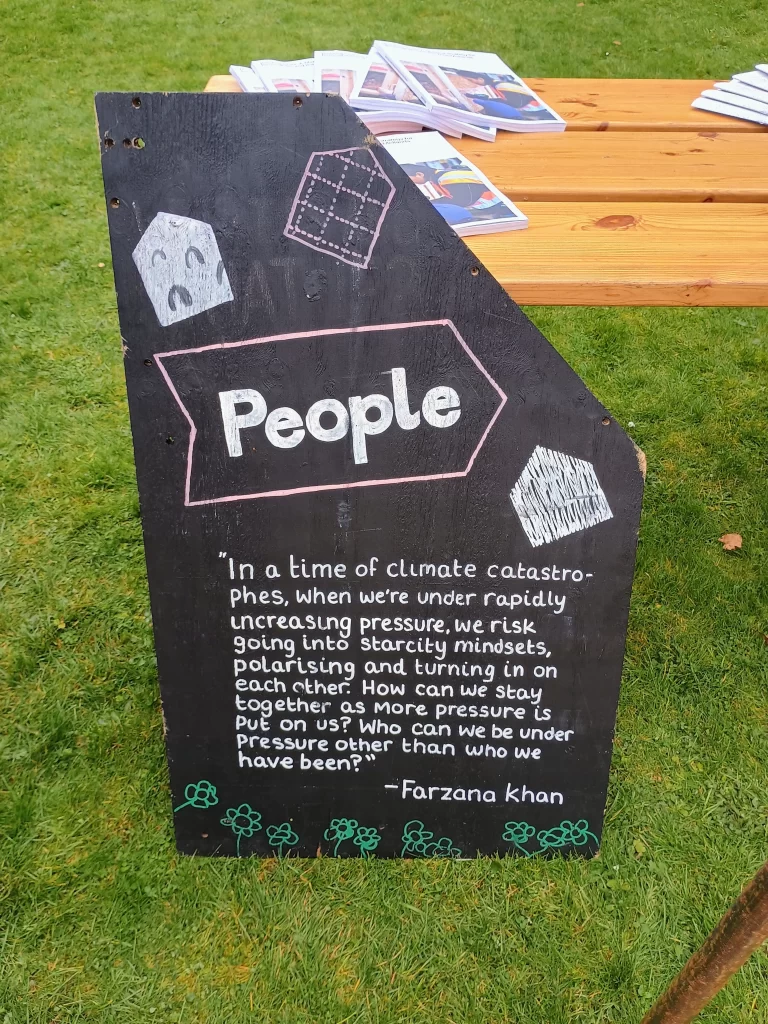 People
"In a time of climate catastro-
phes, when we're under rapidly
increasing pressure, we risk
going into starcity mindsets,
polarising and turning in on
each other. How can we stay
together as more pressure is
put on us? Who can we be under
pressure other than who we
have been?"
-Farzana Khan